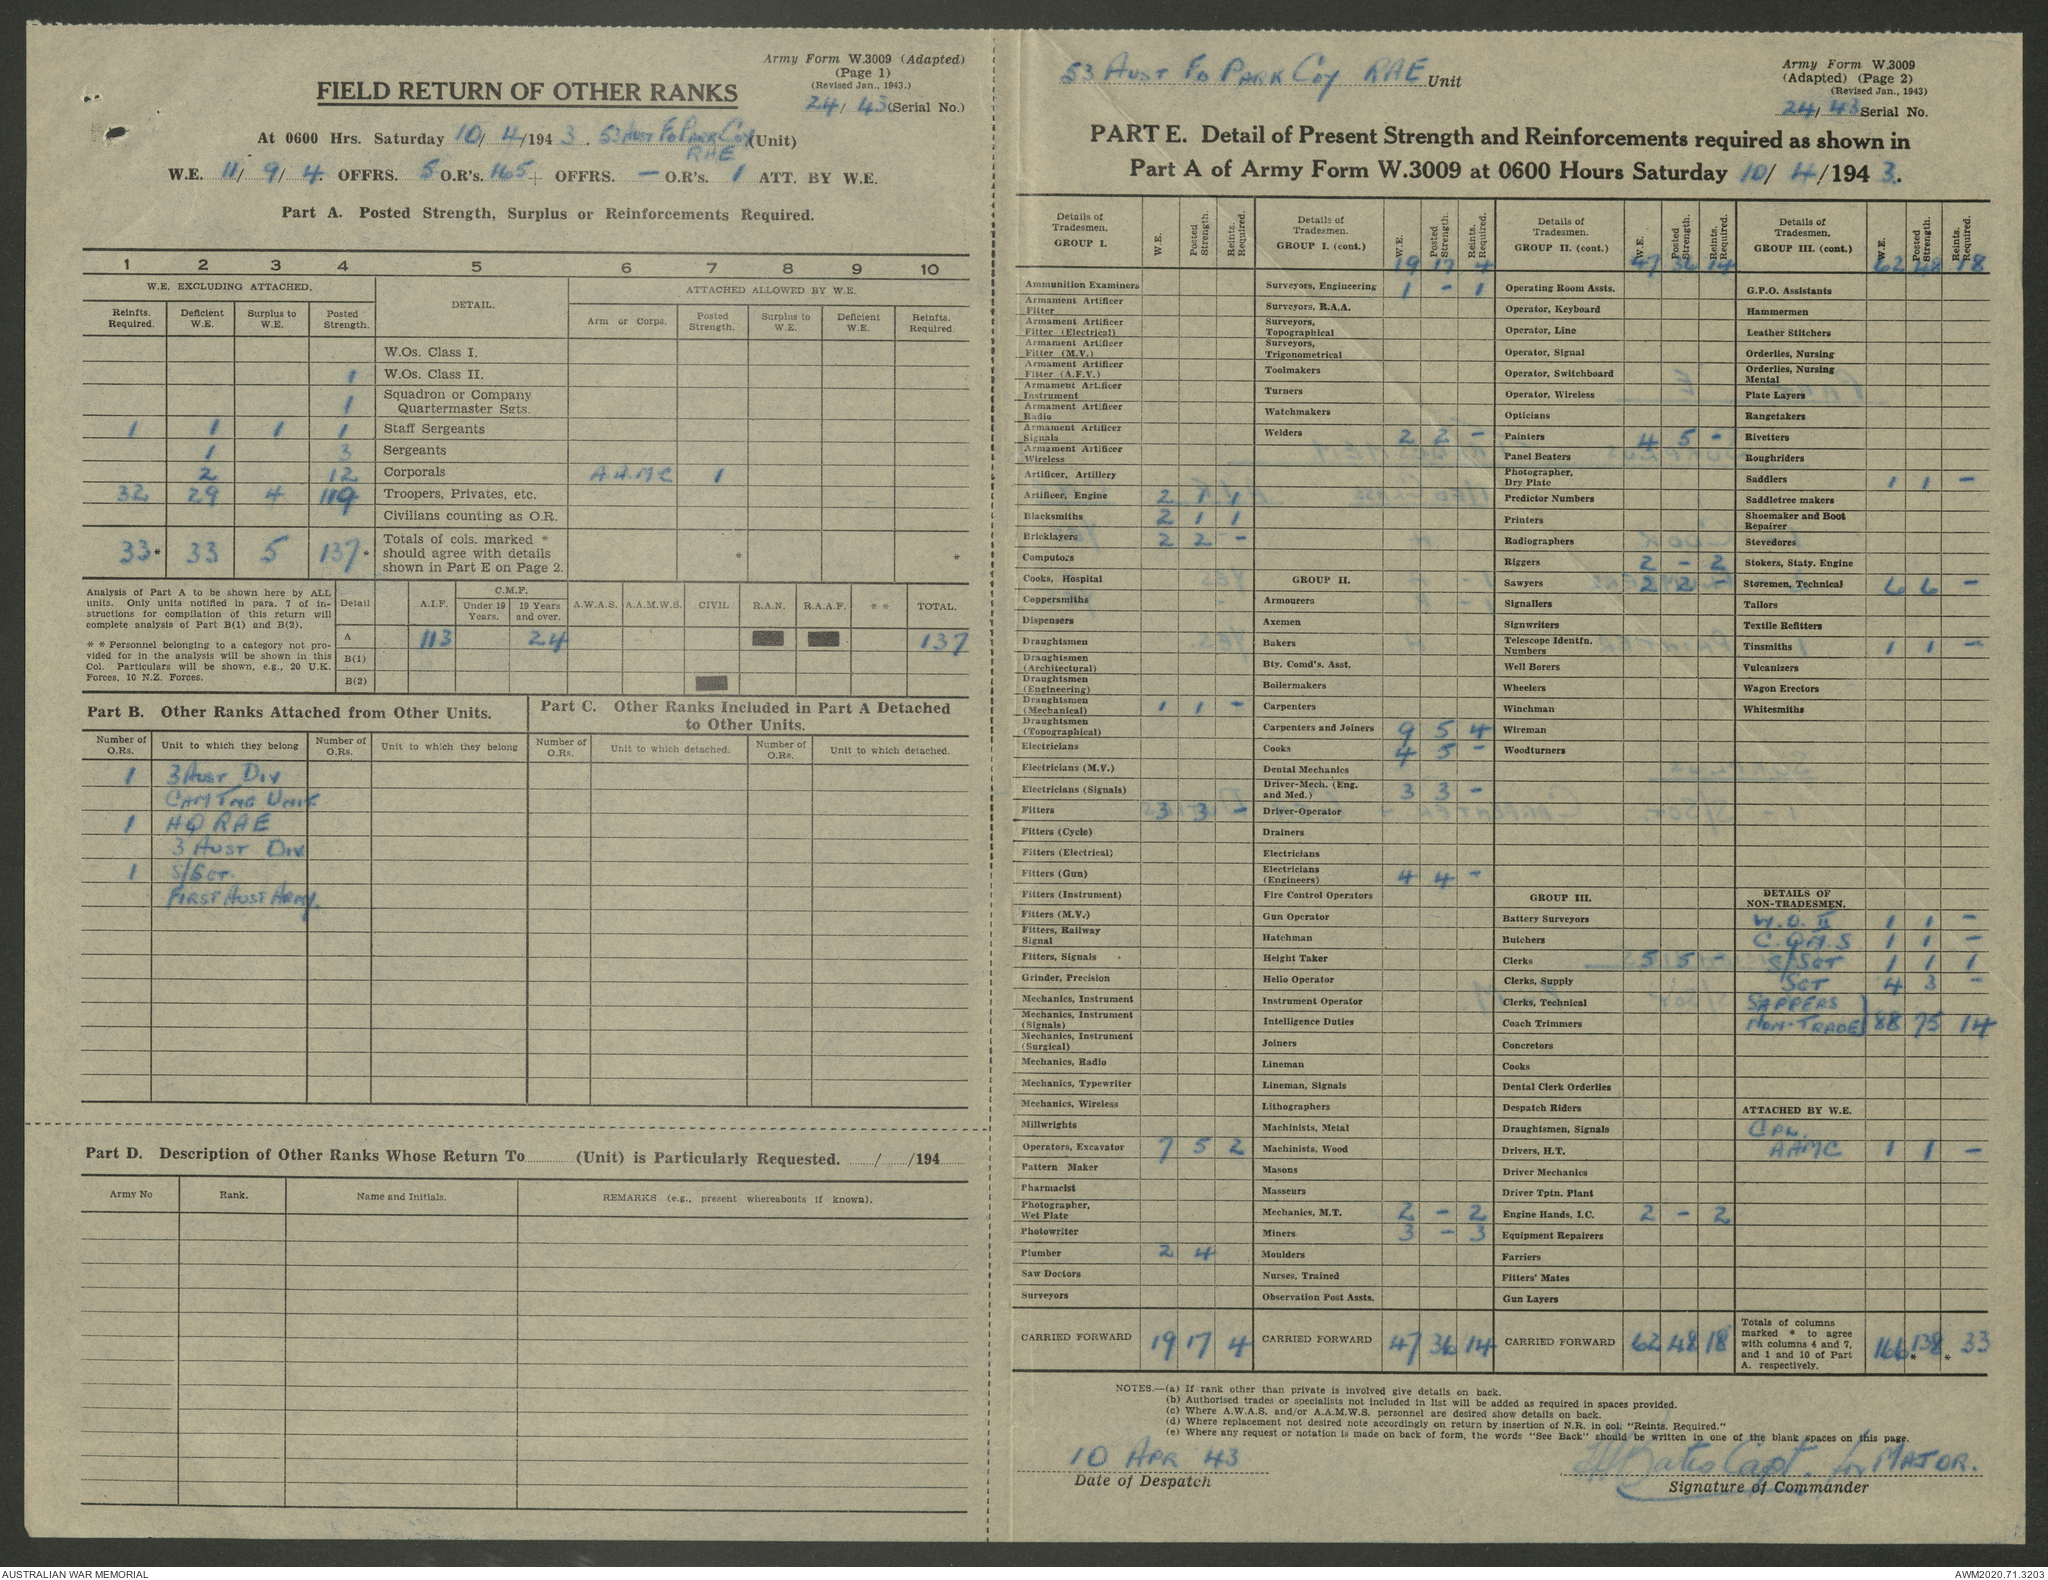 Army Form W.3009 (Adapted)
(Page 1)
(Revised Jan., 1943.)
24/ 43 (Serial No.)
FIELD RETURN OF OTHER RANKS
At 0600 Hrs. Saturday 10/ 4/194 3. 53 Aust Fd Park Coy (Unit)
RAE
W.E. 11/ 9/ 4. OFFRS. 5 O.R's. 165 + OFFRS. — O.R's. 1 ATT. BY W.E.
Part A. Posted Strength, Surplus or Reinforcements Required.
1 2 3 4 5 6 7 8 9 10
W.E. EXCLUDING ATTACHED. DETAIL. ATTACHED ALLOWED BY W.E.
Reinfts. Required. Deficient W.E. Surplus to W.E. Posted Strength. Arm or Corps. Posted Strength. Surplus to W.E. Deficient W.E. Reinfts. Required.
W.Os. Class I.
1 W.Os. Class II.
1 Squadron or Company Quartermaster Sgts.
1 1 1 1 Staff Sergeants
1 3 Sergeants
2 12 Corporals A.A.M.C 1
32 29 4 119 Troopers, Privates, etc.
Civilians counting as O.R.
33* 33 5 137* Totals of cols. marked * should agree with details shown in Part E on Page 2. * *
Analysis of Part A to be shown here by ALL units. Only units notified in para. 7 of instructions for compilation of this return will complete analysis of Part B(1) and B(2).
* * Personnel belonging to a category not provided for in the analysis will be shown in this Col. Particulars will be shown, e.g., 20 U.K. Forces, 10 N.Z. Forces.
Detail A.I.F. C.M.F. Under 19 Years. 19 Years and over. A.W.A.S. A.A.M.W.S. CIVIL R.A.N. R.A.A.F. * * TOTAL.
A 113 24 137
B(1)
B(2)
Part B. Other Ranks Attached from Other Units.
Part C. Other Ranks Included in Part A Detached to Other Units.
Number of O.Rs. Unit to which they belong Number of O.Rs. Unit to which they belong Number of O.Rs. Unit to which detached. Number of O.Rs. Unit to which detached.
1 3 Aust Div
Cam Tng Unit
1 HQ RAE
3 Aust Div
1 S/Sgt.
First Aust Army.
Part D. Description of Other Ranks Whose Return To (Unit) is Particularly Requested. / /194
Army No Rank. Name and Initials. REMARKS (e.g., present whereabouts if known).
53 Aust Fd Park Coy RAE Unit
Army Form W.3009
(Adapted) (Page 2)
(Revised Jan., 1943)
24/ 43 Serial No.
PART E. Detail of Present Strength and Reinforcements required as shown in
Part A of Army Form W.3009 at 0600 Hours Saturday 10/ 4/194 3.
Details of Tradesmen. GROUP I. W.E. Posted Strength. Reints. Required.
Ammunition Examiners
Armament Artificer Fitter
Armament Artificer Fitter (Electrical)
Armament Artificer Fitter (M.V.)
Armament Artificer Fitter (A.F.V.)
Armament Artificer Instrument
Armament Artificer Radio
Armament Artificer Signals
Armament Artificer Wireless
Artificer, Artillery
Artificer, Engine 2 1 1
Blacksmiths 2 1 1
Bricklayers 2 2 -
Computors
Cooks, Hospital
Coppersmiths
Dispensers
Draughtsmen
Draughtsmen (Architectural)
Draughtsmen (Engineering)
Draughtsmen (Mechanical) 1 1 -
Draughtsmen (Topographical)
Electricians
Electricians (M.V.)
Electricians (Signals)
Fitters 3 3 -
Fitters (Cycle)
Fitters (Electrical)
Fitters (Gun)
Fitters (Instrument)
Fitters (M.V.)
Fitters, Railway Signal
Fitters, Signals
Grinder, Precision
Mechanics, Instrument
Mechanics, Instrument (Signals)
Mechanics, Instrument (Surgical)
Mechanics, Radio
Mechanics, Typewriter
Mechanics, Wireless
Millwrights
Operators, Excavator 7 5 2
Pattern Maker
Pharmacist
Photographer, Wet Plate
Photowriter
Plumber 2 4
Saw Doctors
Surveyors
CARRIED FORWARD 19 17 4
Details of Tradesmen. GROUP I. (cont.) W.E. Posted Strength. Reints. Required.
19 17 4
Surveyors, Engineering 1 - 1
Surveyors, R.A.A.
Surveyors, Topographical
Surveyors, Trigonometrical
Toolmakers
Turners
Watchmakers
Welders 2 2 -
GROUP II.
Armourers
Axemen
Bakers
Bty. Comd's. Asst.
Boilermakers
Carpenters
Carpenters and Joiners 9 5 4
Cooks 4 5 -
Dental Mechanics
Driver-Mech. (Eng. and Med.) 3 3 -
Driver-Operator
Drainers
Electricians
Electricians (Engineers) 4 4 -
Fire Control Operators
Gun Operator
Hatchman
Height Taker
Helio Operator
Instrument Operator
Intelligence Duties
Joiners
Lineman
Lineman, Signals
Lithographers
Machinists, Metal
Machinists, Wood
Masons
Masseurs
Mechanics, M.T. 2 - 2
Miners 3 - 3
Moulders
Nurses, Trained
Observation Post Assts.
CARRIED FORWARD 47 36 14
Details of Tradesmen. GROUP II. (cont.) W.E. Posted Strength. Reints. Required.
47 36 14
Operating Room Assts.
Operator, Keyboard
Operator, Line
Operator, Signal
Operator, Switchboard
Operator, Wireless
Opticians
Painters 4 5 -
Panel Beaters
Photographer, Dry Plate
Predictor Numbers
Printers
Radiographers
Riggers 2 - 2
Sawyers 2 2 -
Signallers
Signwriters
Telescope Identfn. Numbers
Well Borers
Wheelers
Winchman
Wireman
Woodturners
GROUP III.
Battery Surveyors
Butchers
Clerks 5 5 -
Clerks, Supply
Clerks, Technical
Coach Trimmers
Concretors
Cooks
Dental Clerk Orderlies
Despatch Riders
Draughtsmen, Signals
Drivers, H.T.
Driver Mechanics
Driver Tptn. Plant
Engine Hands, I.C. 2 - 2
Equipment Repairers
Farriers
Fitters' Mates
Gun Layers
CARRIED FORWARD 62 48 18
Details of Tradesmen. GROUP III. (cont.) W.E. Posted Strength. Reints. Required.
62 48 18
G.P.O. Assistants
Hammermen
Leather Stitchers
Orderlies, Nursing
Orderlies, Nursing Mental
Plate Layers
Rangetakers
Rivetters
Roughriders
Saddlers 1 1 -
Saddletree makers
Shoemaker and Boot Repairer
Stevedores
Stokers, Staty. Engine
Storemen, Technical 6 6 -
Tailors
Textile Refitters
Tinsmiths 1 1 -
Vulcanizers
Wagon Erectors
Whitesmiths
DETAILS OF NON-TRADESMEN.
W.O. II 1 1 -
C.Q.M.S 1 1 -
S/Sgt 1 1 1
Sgt 4 3 -
Sappers
Non-Trade } 88 75 14
ATTACHED BY W.E.
Cpl.
AAMC 1 1 -
Totals of columns marked * to agree with columns 4 and 7, and 1 and 10 of Part A. respectively. 166 138 33
* *
NOTES.—(a) If rank other than private is involved give details on back.
(b) Authorised trades or specialists not included in list will be added as required in spaces provided.
(c) Where A.W.A.S. and/or A.A.M.W.S. personnel are desired show details on back.
(d) Where replacement not desired note accordingly on return by insertion of N.R. in col. "Reints. Required."
(e) Where any request or notation is made on back of form, the words "See Back" should be written in one of the blank spaces on this page.
10 Apr 43
Date of Despatch
Bates Capt. for Major.
Signature of Commander
AUSTRALIAN WAR MEMORIAL
AWM2020.71.3203